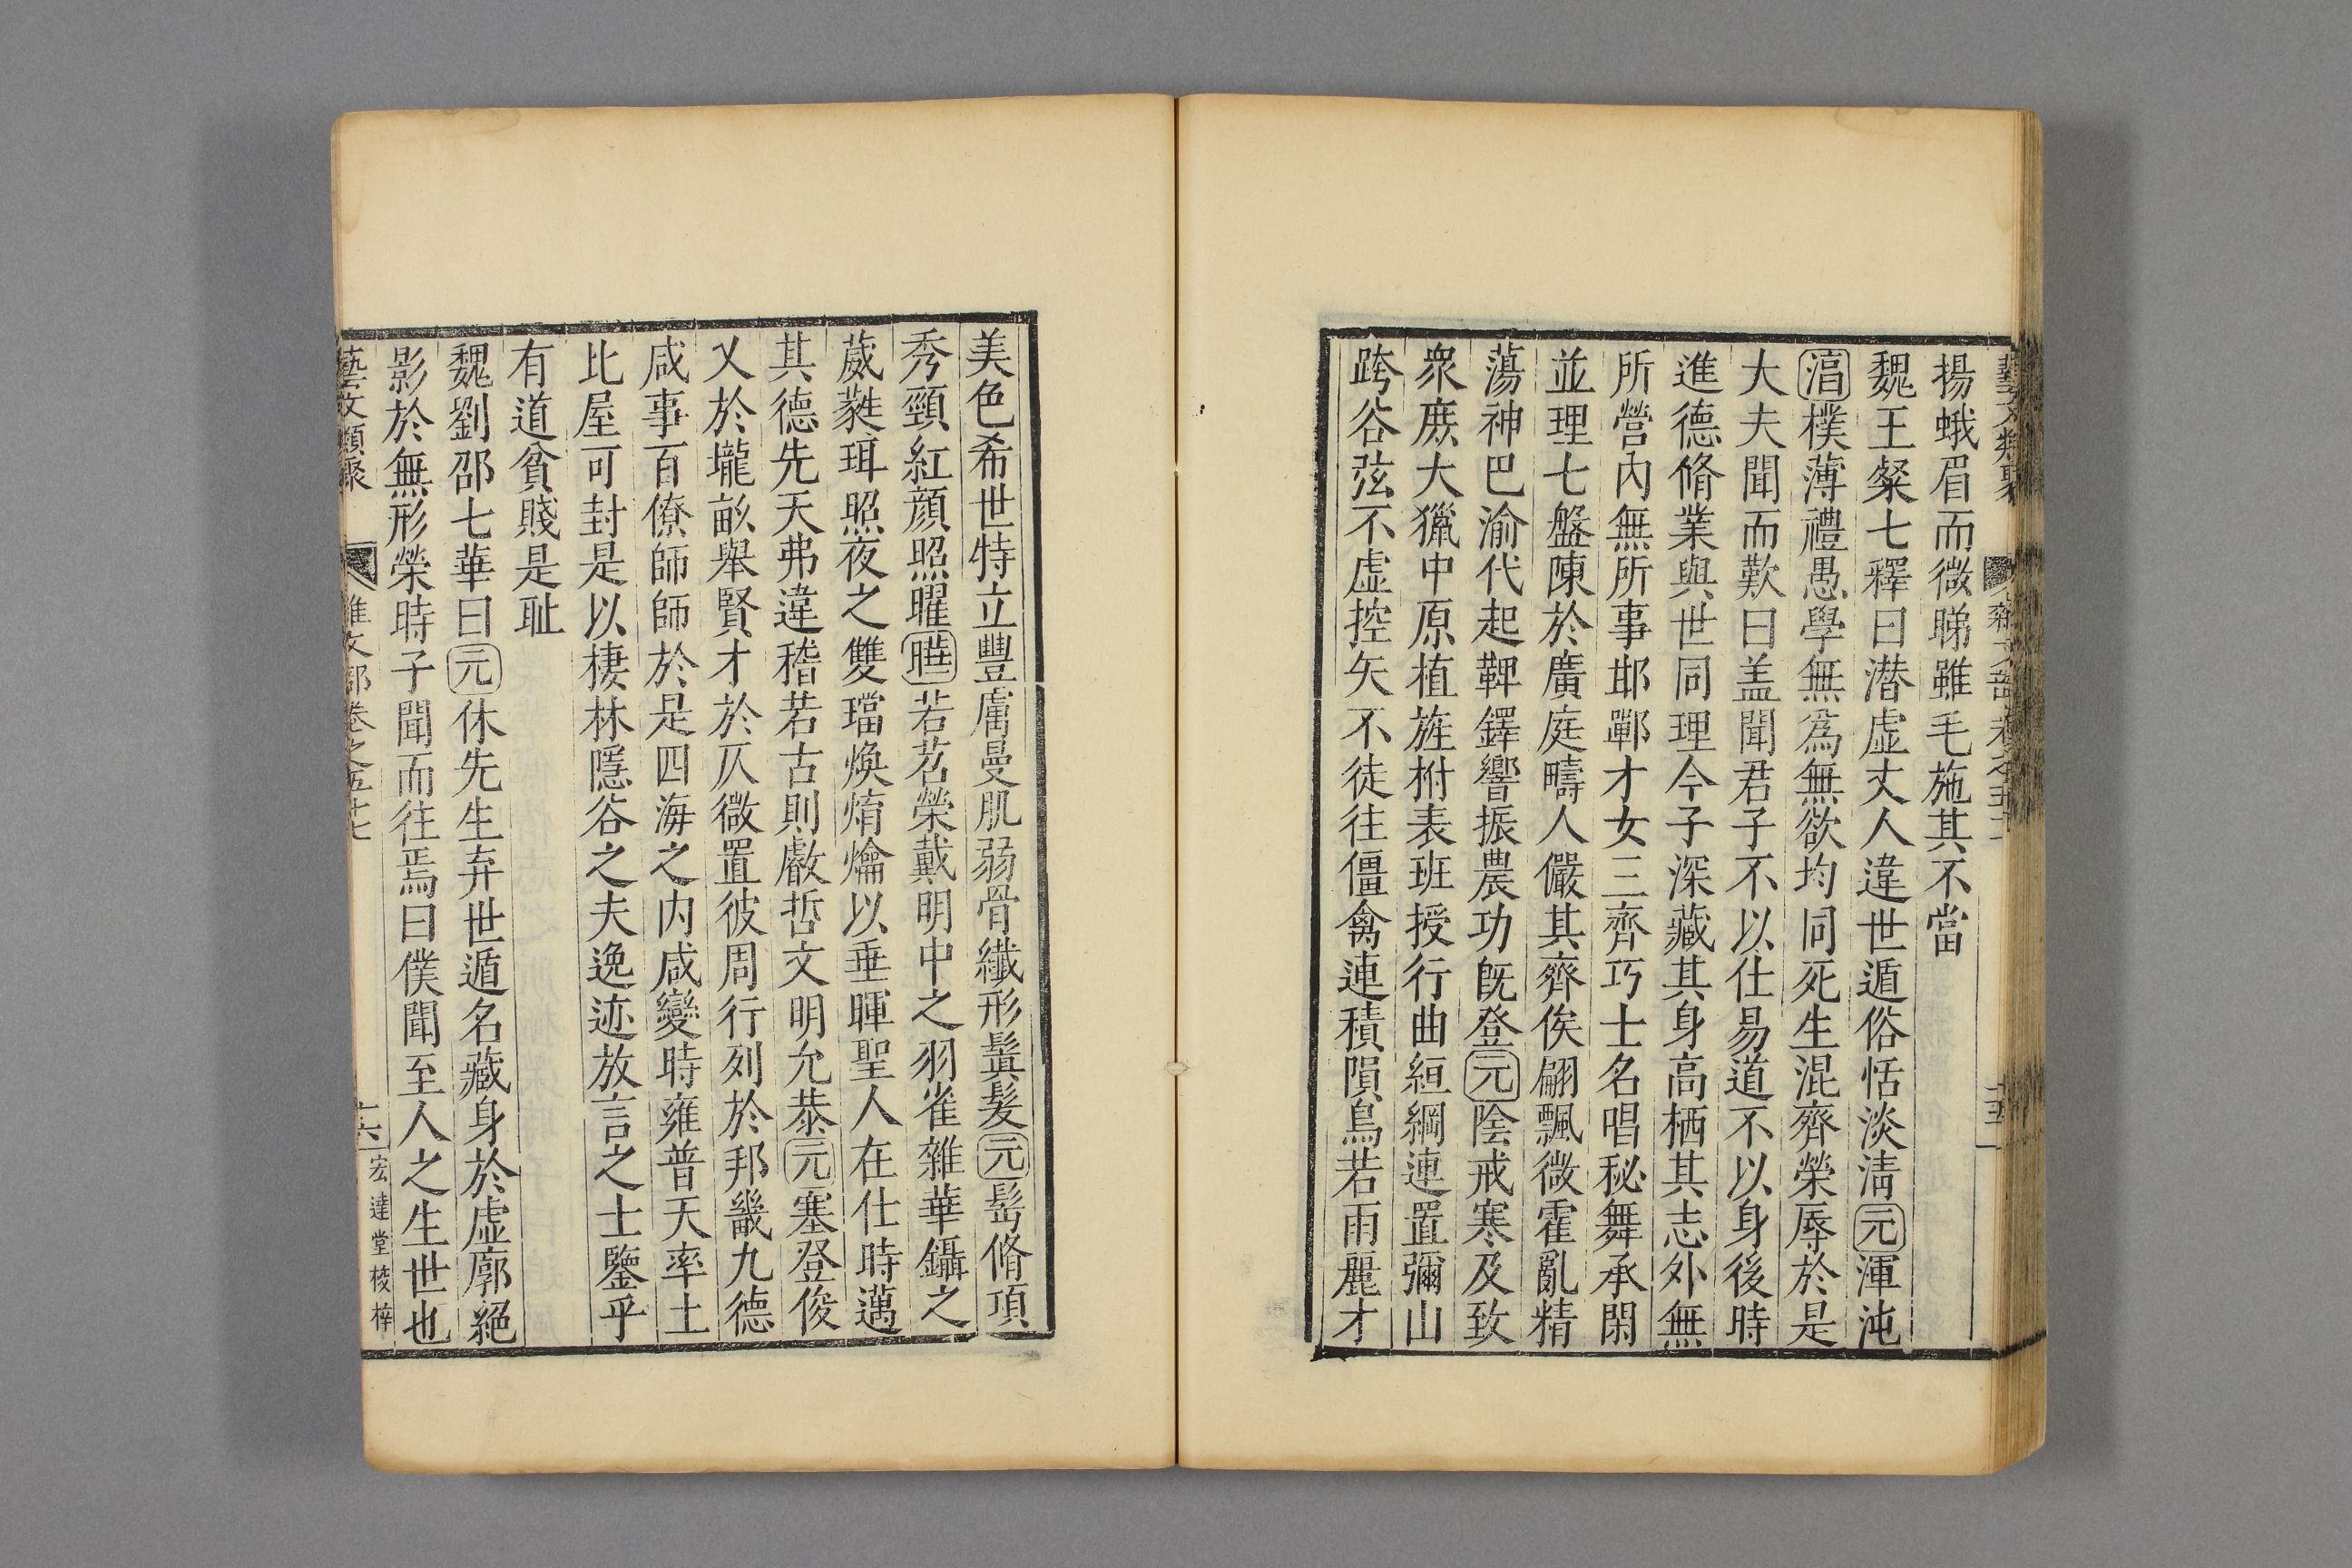 揚蛾眉而微睇雖毛施其不當
魏王粲七釋曰潛虛丈人違世遁俗恬淡淸元渾沌
滛樸薄禮愚學無爲無欲均同死生混齊榮辱於是
大夫聞而歎曰盖聞君子不以仕易道不以身後時
進德脩業與世同理今子深藏其身高栖其志外無
所營內無所事邯鄲才女三齊巧士名唱秘舞承閑
並理七盤陳於廣庭疇人儼其齊俟翩飄微霍亂精
蕩神巴渝代起鞞鐸響振農功旣登元陰戒寒及致
衆庶大獵中原植旌柎表班授行曲絙綱連置彌山
跨谷弦不虛控矢不徒往僵禽連積隕鳥若雨麗才
美色希世特立豐膚曼肌弱骨纖形鬒髮元髻脩項
秀頸紅顏照曜曄若苕榮戴明中之羽雀雜華鑷之
葳蕤珥照夜之雙璫煥焴爚以垂暉聖人在仕時邁
其德先天弗違稽若古則叡哲文明允恭元塞登俊
乂於壠畝舉賢才於仄微置彼周行列於邦畿九德
咸事百僚師師於是四海之內咸變時雍普天率土
比屋可封是以棲林隱谷之夫逸迹放言之士鑒乎
有道貧賤是耻
魏劉邵七華曰元休先生弃世遁名藏身於虛廓絕
影於無形榮時子聞而往焉曰僕聞至人之生世也
藝文類聚 雜文部卷之五十七 十六 宏達堂棱梓